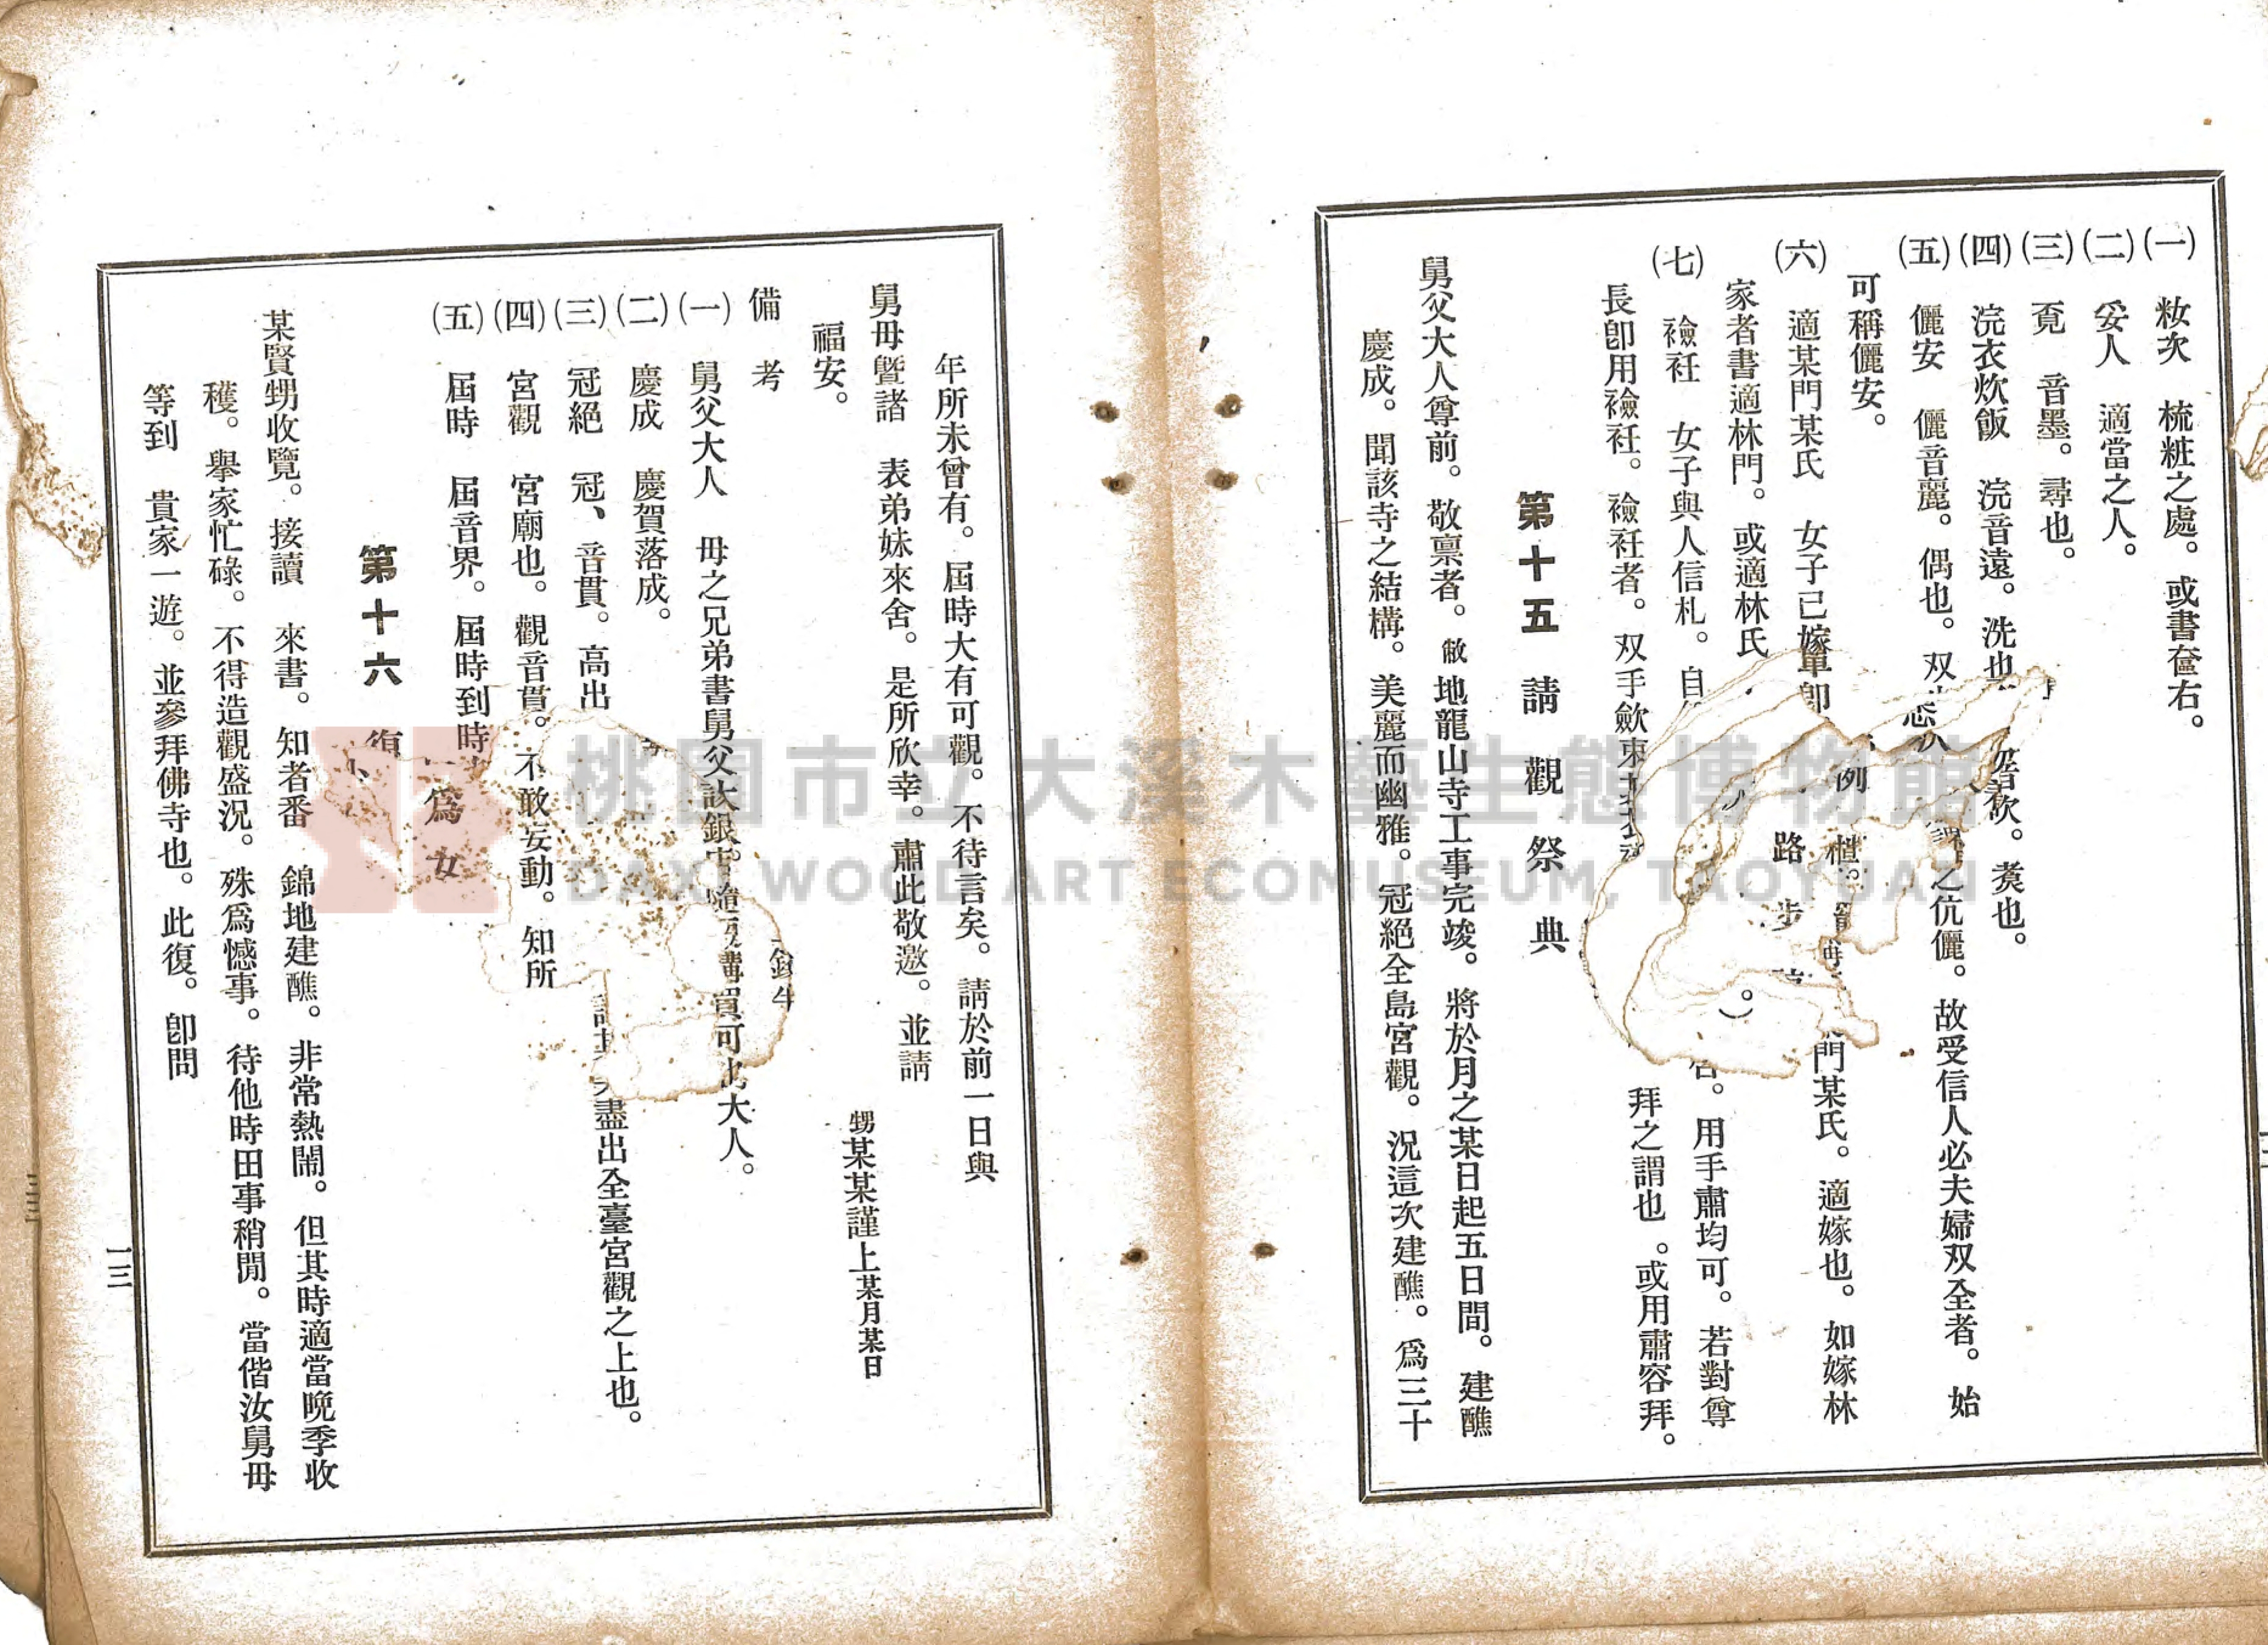 (一) 妝次 梳粧之處。或書奩右。
(二) 妥人 適當之人。
(三) 覓 音墨。尋也。
(四) 浣衣炊飯 浣音遠。洗也 煑也。
(五) 儷安 儷音麗。偶也。双 之伉儷。故受信人必夫婦双全者。始
可稱儷安。
(六) 適某門某氏 女子已嫁 門某氏。適嫁也。如嫁林
家者書適林門。或適林氏
(七) 襝衽 女子與人信札。自 用手肅均可。若對尊
長卽用襝衽。襝衽者。双手歛 拜之謂也。或用肅容拜。
例
路 步
第十五 請觀祭典
舅父大人尊前。敬禀者。敝地龍山寺工事完竣。將於月之某日起五日間。建醮
慶成。聞該寺之結構。美麗而幽雅。冠絕全島宮觀。況這次建醮。爲三十
年所未曾有。屆時大有可觀。不待言矣。請於前一日與
舅母曁諸 表弟妹來舍。是所欣幸。肅此敬邀。並請
福安。
甥某某謹上某月某日
備考
(一) 舅父大人 母之兄弟書舅父 大人。
(二) 慶成 慶賀落成。
(三) 冠絕 冠、音貫。高出 盡出全臺宮觀之上也。
(四) 宮觀 宮廟也。觀音貫。不敢妄動。知所
(五) 屆時 屆音界。屆時到時
爲女
第十六 復
某賢甥收覽。接讀 來書。知者番 錦地建醮。非常熱鬧。但其時適當晩季收
穫。擧家忙碌。不得造觀盛況。殊爲憾事。待他時田事稍閒。當偕汝舅母
等到 貴家一遊。並參拜佛寺也。此復。卽問
一三
三三
桃園市立大溪木藝生態博物館
DAXI WOOD ART ECOMUSEUM, TAOYUAN